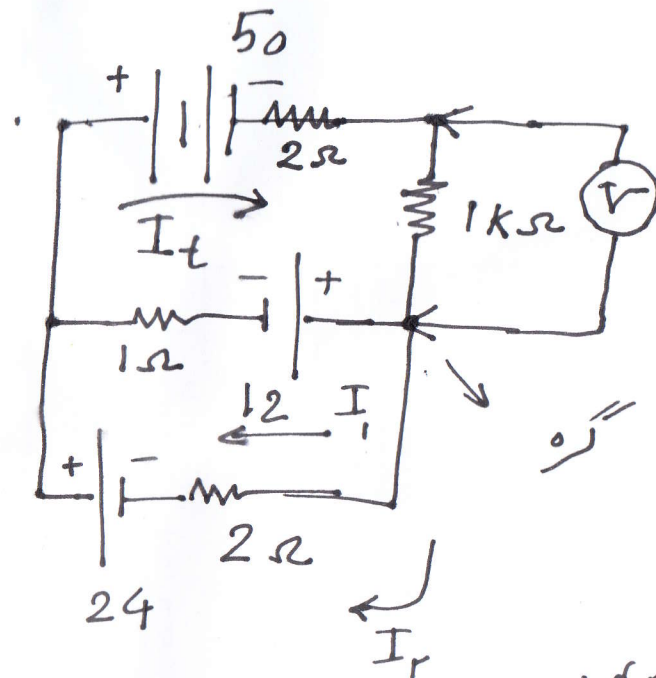 50
+ −
2Ω
It
1KΩ
V
− +
1Ω
12 I1
گره
+ −
2Ω
24
Ir